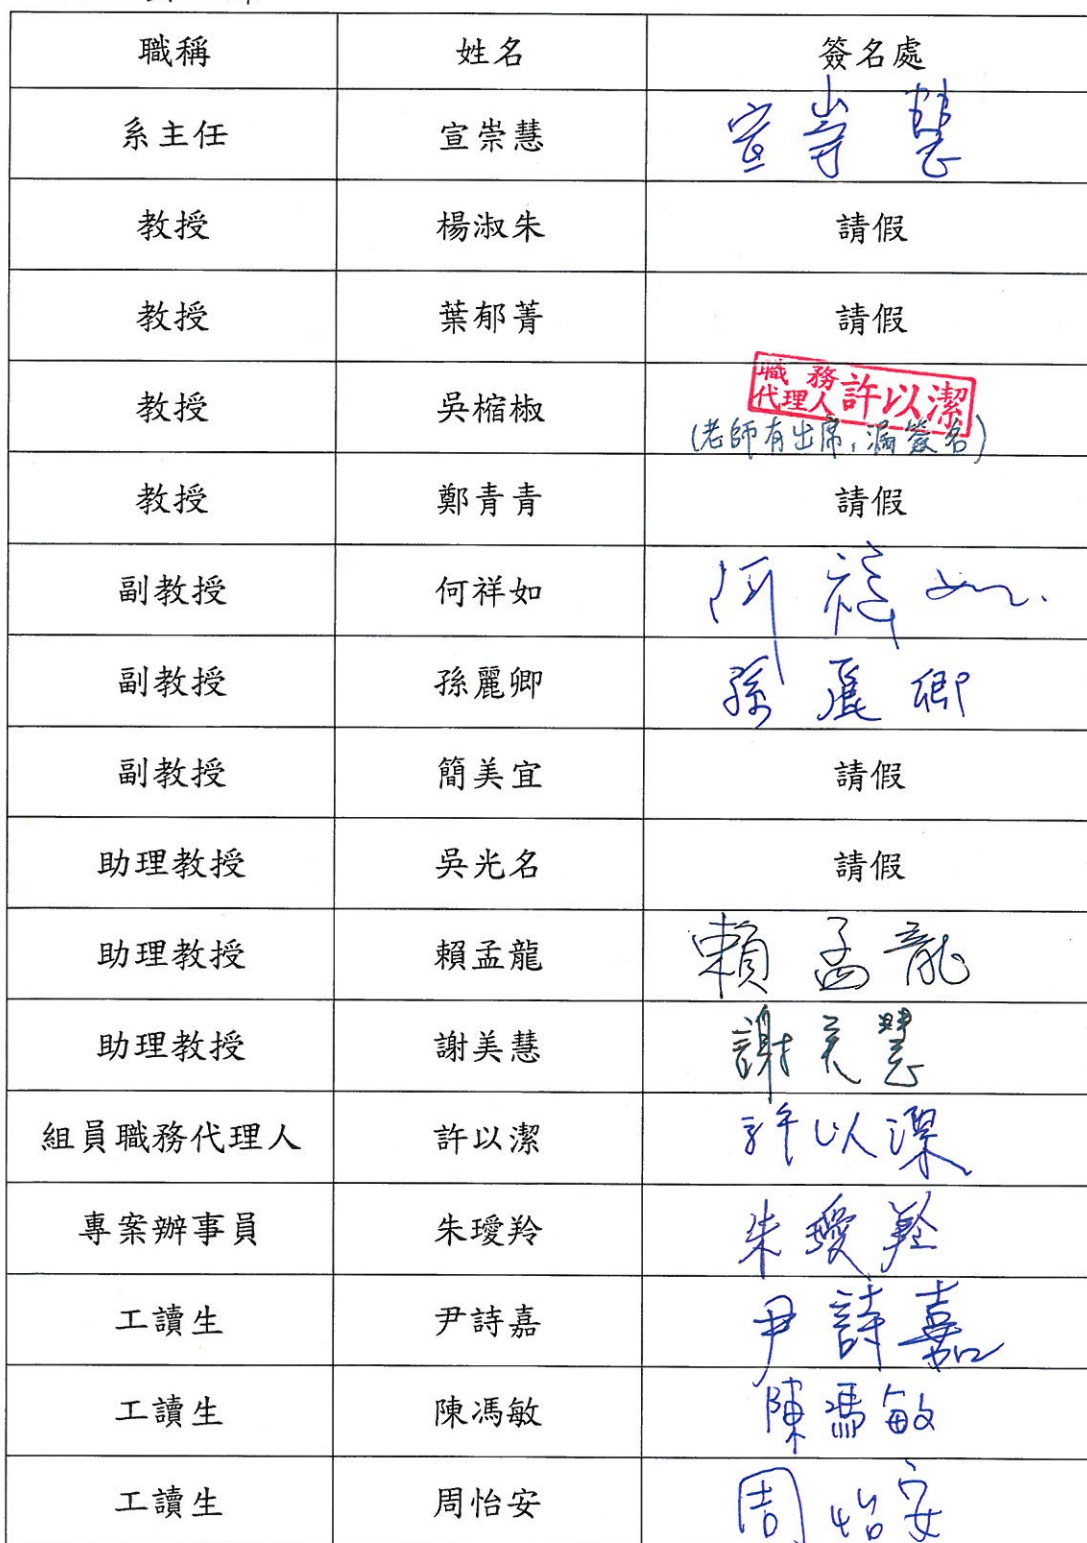 職稱 姓名 簽名處
系主任 宣崇慧 宣崇慧
教授 楊淑朱 請假
教授 葉郁菁 請假
教授 吳樎椒 職務代理人 許以潔
(老師有出席，漏簽名)
教授 鄭青青 請假
副教授 何祥如 何祥如
副教授 孫麗卿 孫麗卿
副教授 簡美宜 請假
助理教授 吳光名 請假
助理教授 賴孟龍 賴孟龍
助理教授 謝美慧 謝美慧
組員職務代理人 許以潔 許以潔
專案辦事員 朱璦羚 朱璦羚
工讀生 尹詩嘉 尹詩嘉
工讀生 陳馮敏 陳馮敏
工讀生 周怡安 周怡安